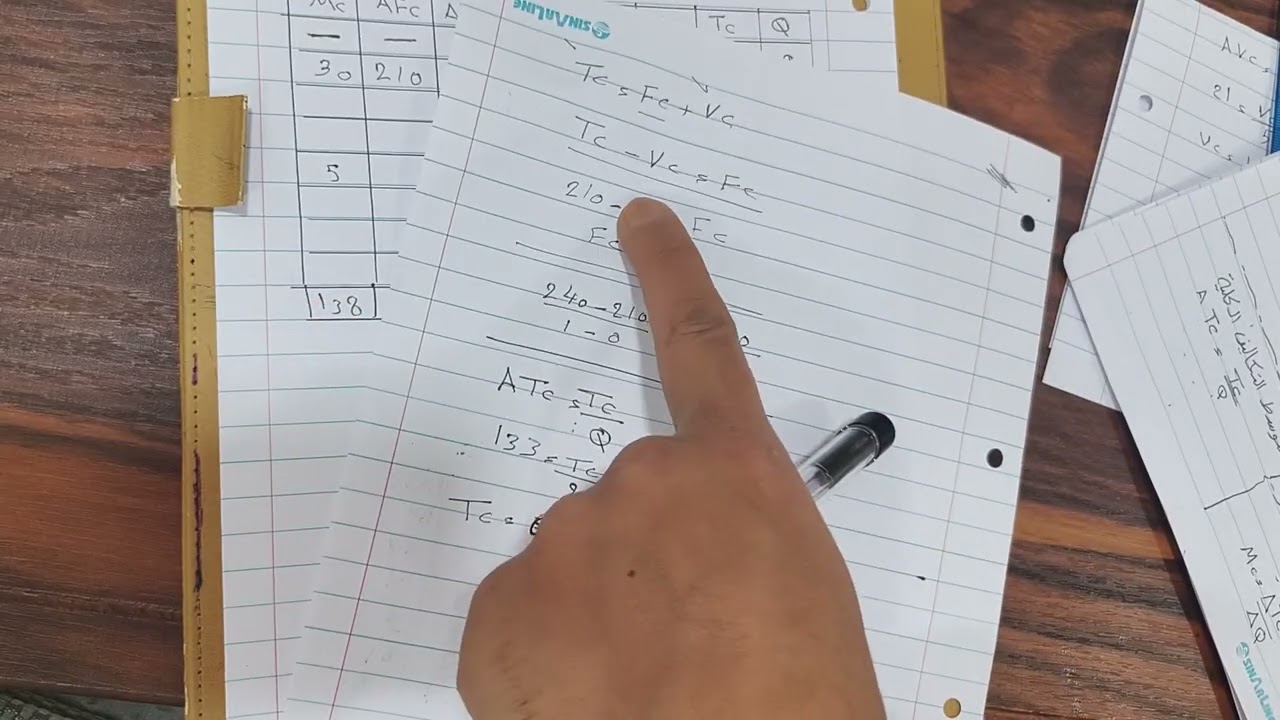 Mc AFc
— —
30 210
5
138
SINARLINE
Tc Q
Tc = Fc + Vc
Tc - Vc = Fc
210 - Fc
Fc
240-210
1-0
ATc = Tc
Q
133 = Tc
Tc =
AVc =
21 =
Vc =
متوسط التكاليف الكلية
ATc = Tc
Q
Mc =
ΔQ
SINARLINE